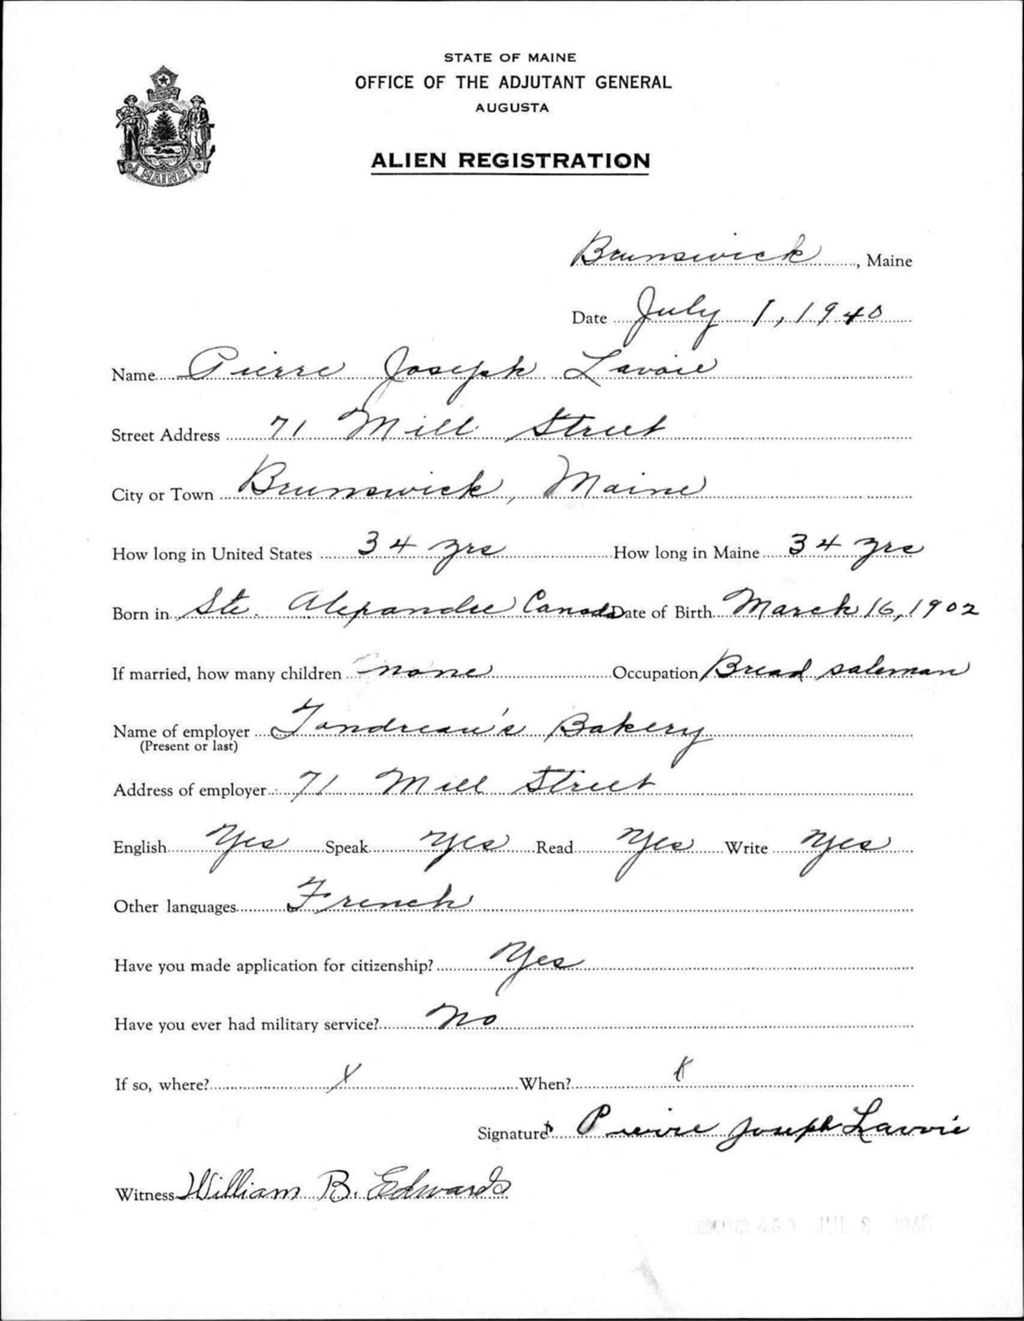 STATE OF MAINE
OFFICE OF THE ADJUTANT GENERAL
AUGUSTA
ALIEN REGISTRATION
MAINE
Brunswick, Maine
Date July 1, 1940
Name Pierre Joseph Lavoie
Street Address 71 Mill Street
City or Town Brunswick, Maine
How long in United States 34 yrs How long in Maine 34 yrs
Born in Ste. Alexandre Canada Date of Birth March 16, 1902
If married, how many children none Occupation Bread saleman
Name of employer Tondreau's Bakery
(Present or last)
Address of employer 71 Mill Street
English Yes Speak Yes Read Yes Write Yes
Other languages French
Have you made application for citizenship? Yes
Have you ever had military service? No
If so, where? X When? X
Signature Pierre Joseph Lavoie
Witness William B. Edwards
A.G.O. JUL 1940